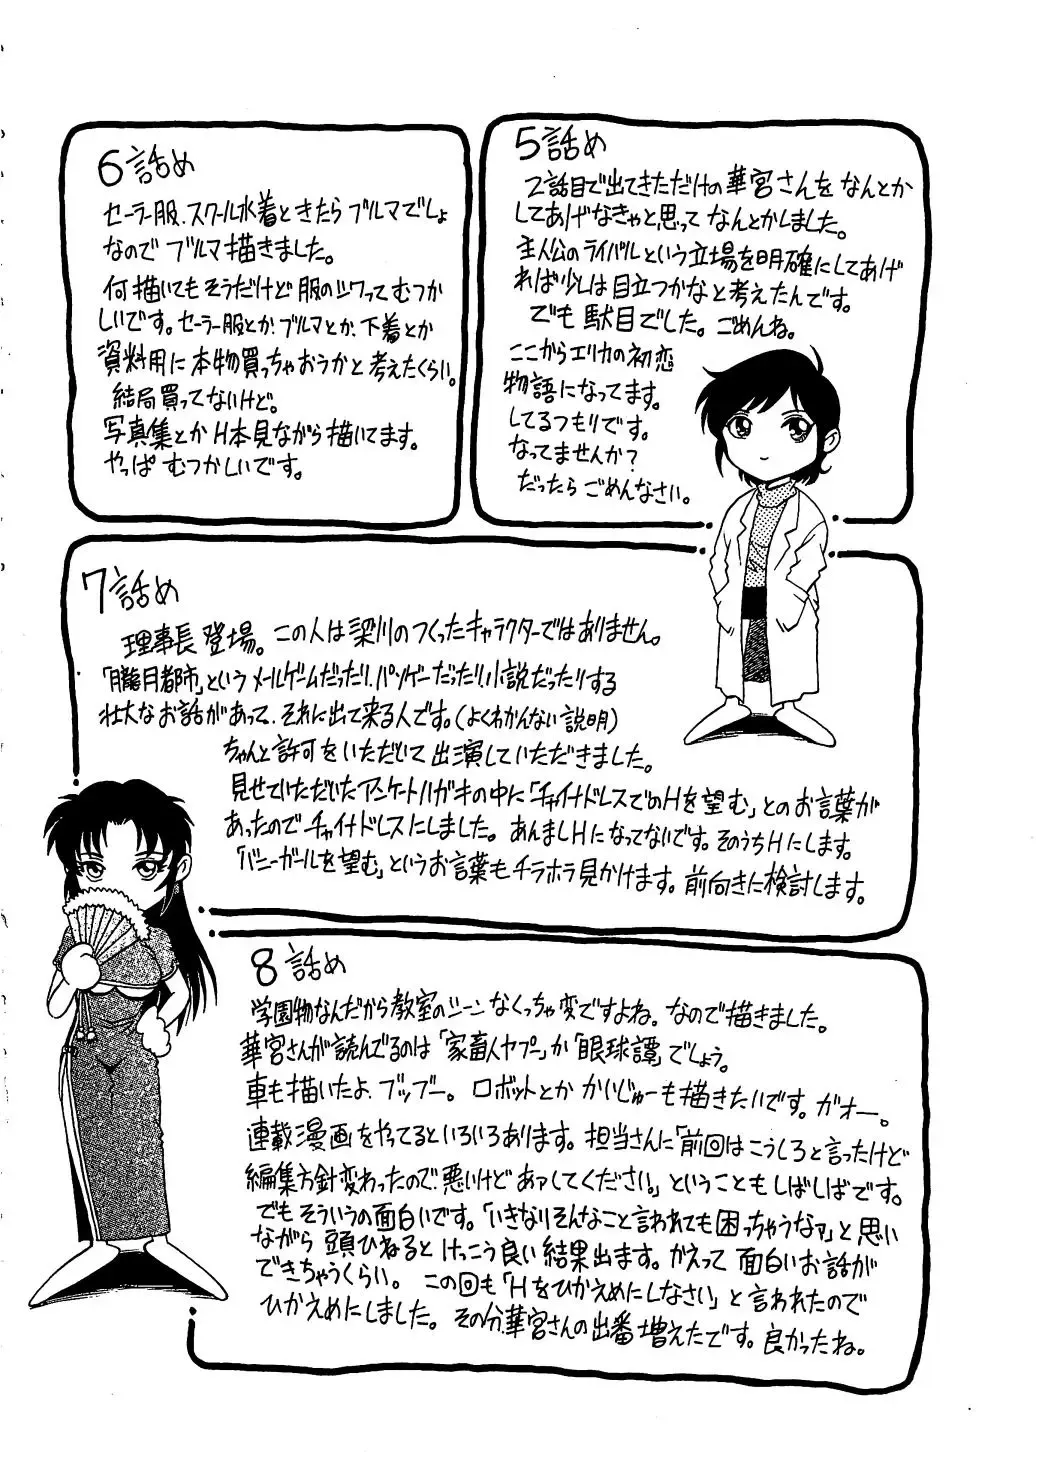 5話め
2話目で出てきただけの華宮さんをなんとか
してあげなきゃと思ってなんとかしました。
主人公のライバルという立場を明確にしてあげ
れば少しは目立つかなと考えたんです。
でも駄目でした。ごめんね。
ここからエリカの初恋
物語になってます。
してるつもりです。
なってませんか？
だったらごめんなさい。
6話め
セーラー服、スクール水着ときたらブルマでしょ
なのでブルマ描きました。
何描いてもそうだけど服のシワってむつか
しいです。セーラー服とか、ブルマとか、下着とか
資料用に本物買っちゃおうかと考えたくらい。
結局買ってないけど。
写真集とかH本見ながら描いてます。
やっぱむつかしいです。
7話め
理事長登場。この人は梁川のつくったキャラクターではありません。
「朧月都市」というメールゲームだったり、パソゲーだったり、小説だったりする
壮大なお話があって、それに出て来る人です。(よくわかんない説明)
ちゃんと許可をいただいて出演していただきました。
見せていただいたアンケートハガキの中に「チャイナドレスでのHを望む」とのお言葉が
あったのでチャイナドレスにしました。あんましHになってないです。そのうちHにします。
「バニーガールを望む」というお言葉もチラホラ見かけます。前向きに検討します。
8話め
学園物なんだから教室のシーンなくっちゃ変ですよね。なので描きました。
華宮さんが読んでるのは「家畜人ヤプー」か「眼球譚」でしょう。
車も描いたよ、ブッブー。ロボットとかかいじゅーも描きたいです。ガオー。
連載漫画をやってるといろいろあります。担当さんに「前回はこうしろと言ったけど
編集方針変わったので悪いけどあァしてください。」ということもしばしばです。
でもそういうの面白いです。「いきなりそんなこと言われても困っちゃうなァ」と思い
ながら頭ひねるとけっこう良い結果出ます。かえって面白いお話が
できちゃうくらい。この回も「Hをひかえめにしなさい」と言われたので
ひかえめにしました。その分華宮さんの出番増えたです。良かったね。